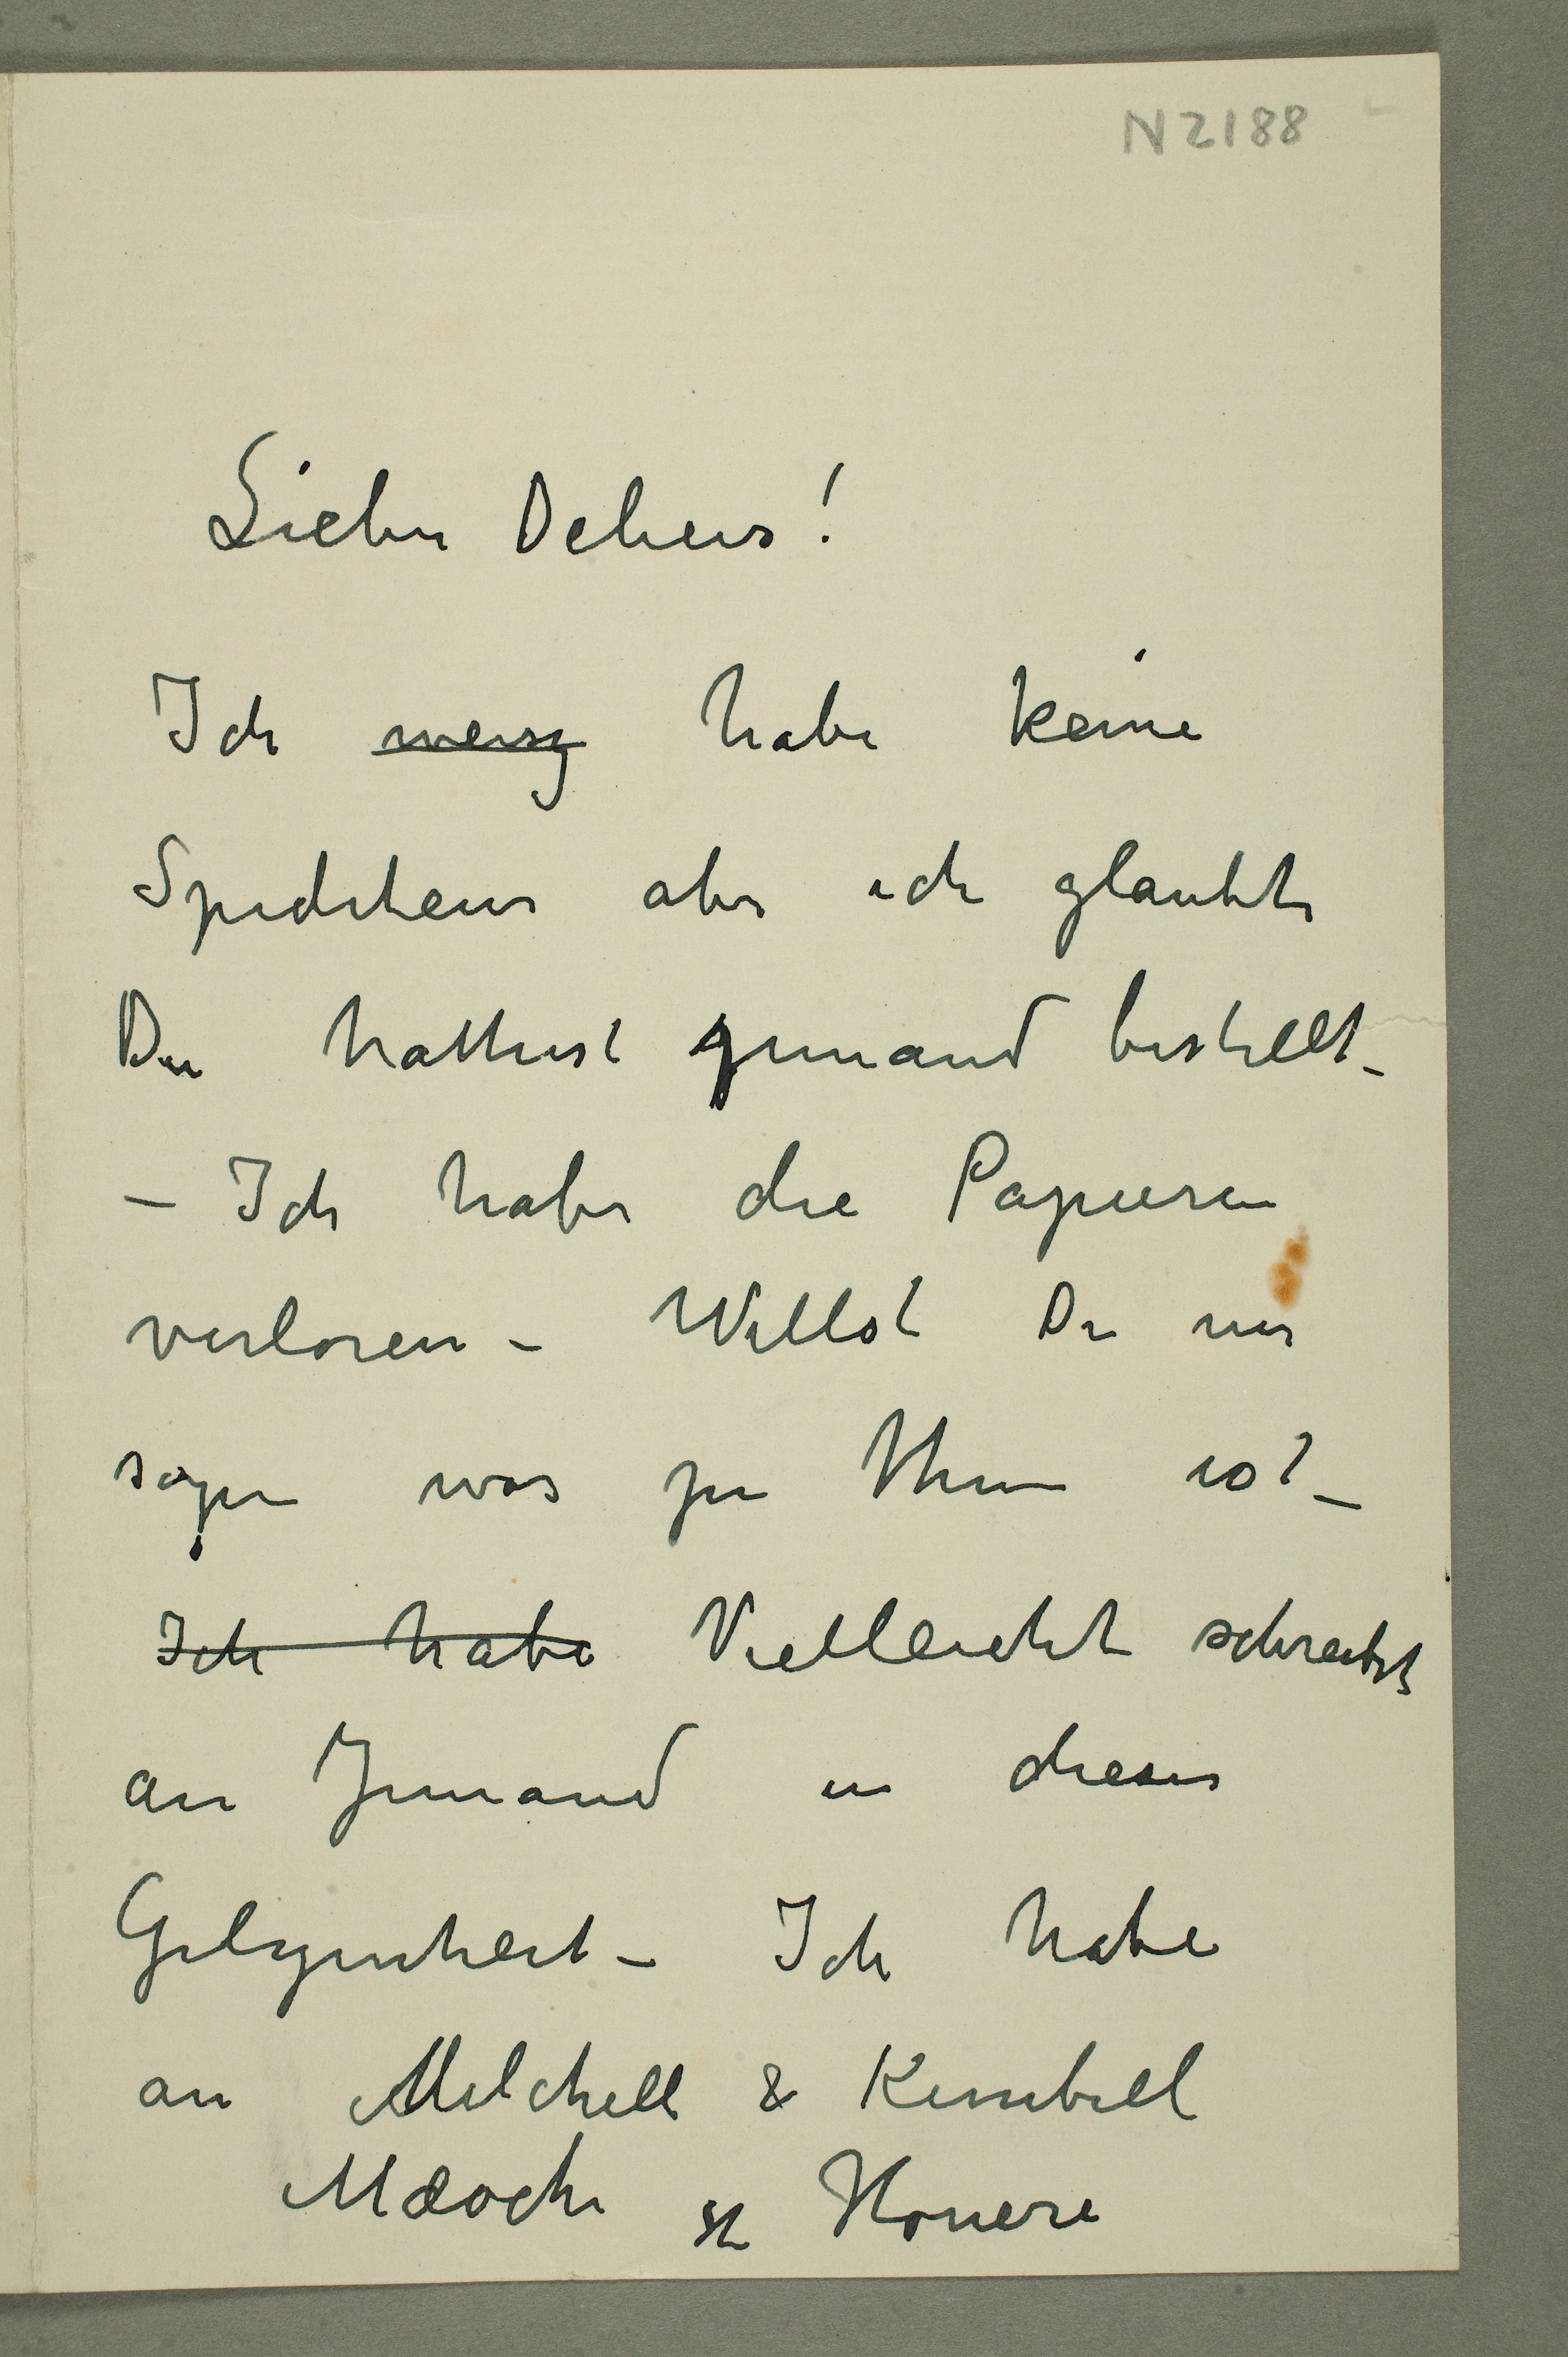 N 2188
Lieber Delius!
Ich weisz habe keine
Spediteur aber ich glaubte
Du hattest Jemand bestellt –
– Ich habe die Papieren
verloren – Willst Du mir
sagen was zu Thun ist –
Ich habe Vielleicht schreibst
an Jemand in dieser
Gelegenheit – Ich habe
an Mitchell & Kimbell
Place de